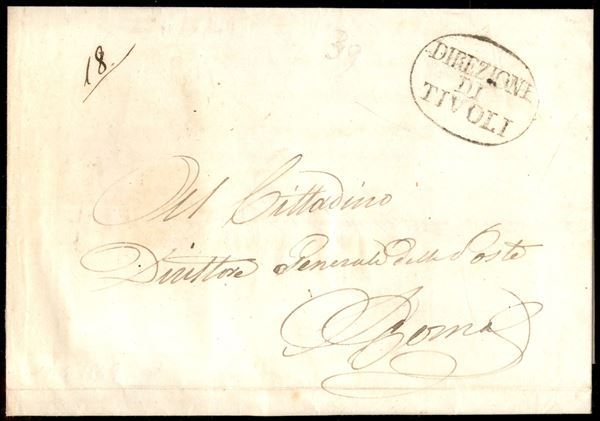 18.
39
DIREZIONE
DI
TIVOLI
Al Cittadino
Direttore Generale delle Poste
Roma